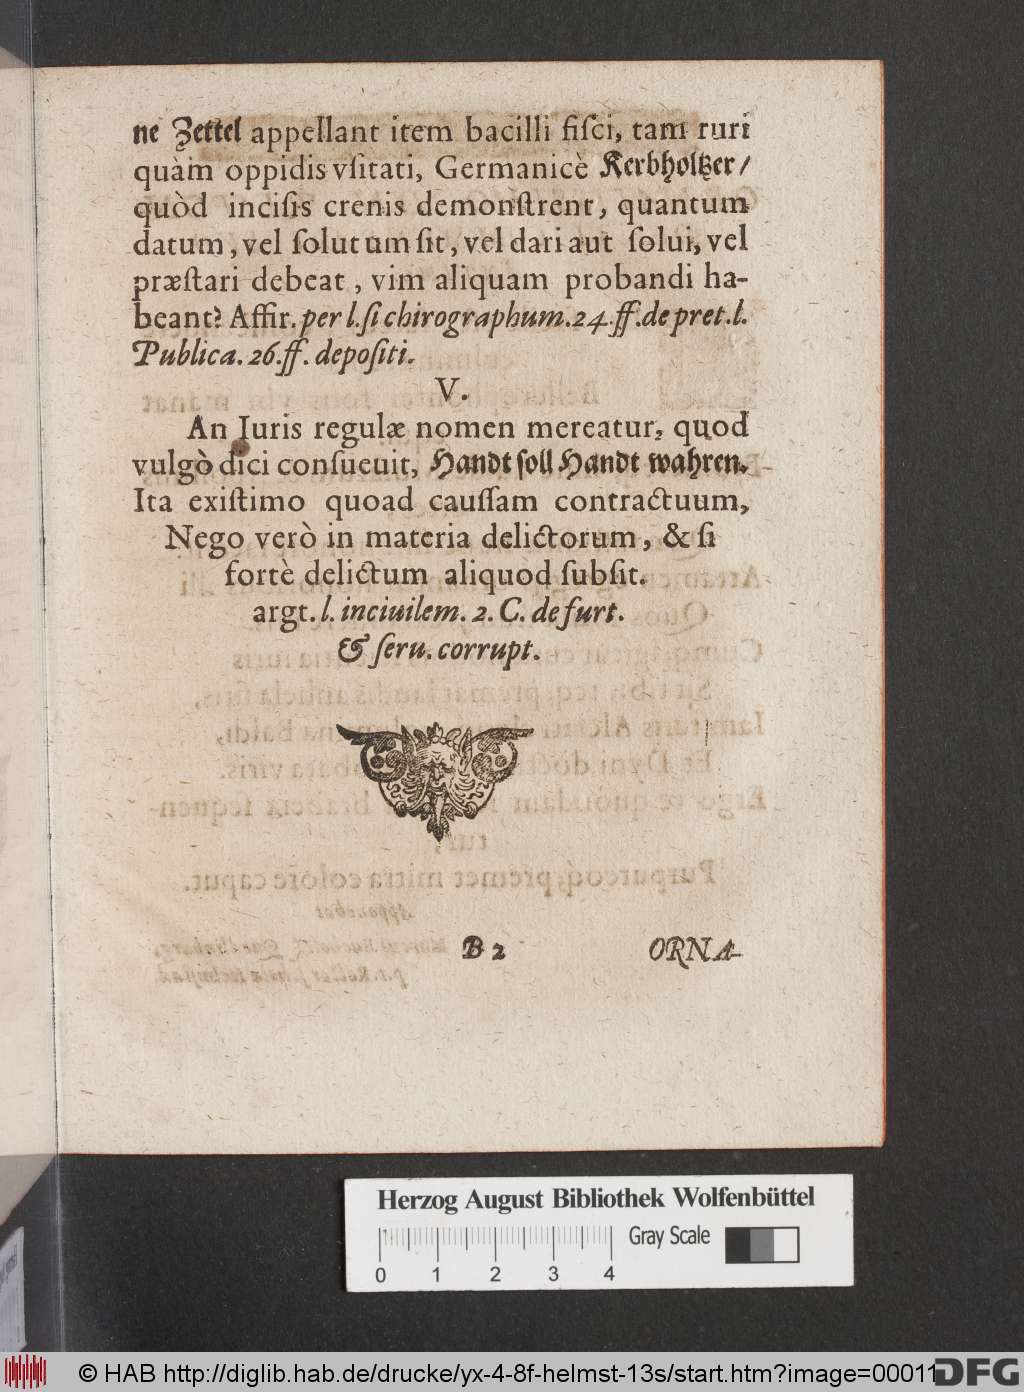 ne Zettel appellant item bacilli fiſci, tam ruri
quàm oppidis vſitati, Germanicè Kerbhöltzer/
quòd inciſis crenis demonſtrent, quantum
datum, vel ſolutum ſit, vel dari aut ſolui, vel
præſtari debeat, vim aliquam probandi ha-
beant? Affir. per l. ſi chirographum. 24. ff. de pret. l.
Publica. 26. ff. depoſiti.
V.
An Juris regulæ nomen mereatur, quod
vulgò dici conſueuit, Handt ſoll Handt wahren.
Ita exiſtimo quoad cauſſam contractuum,
Nego verò in materia delictorum, & ſi
fortè delictum aliquod ſubſit.
argt. l. inciuilem. 2. C. de furt.
& ſeru. corrupt.
B 2 ORNA-
Herzog August Bibliothek Wolfenbüttel
Gray Scale
0 1 2 3 4
© HAB http://diglib.hab.de/drucke/yx-4-8f-helmst-13s/start.htm?image=00011
DFG